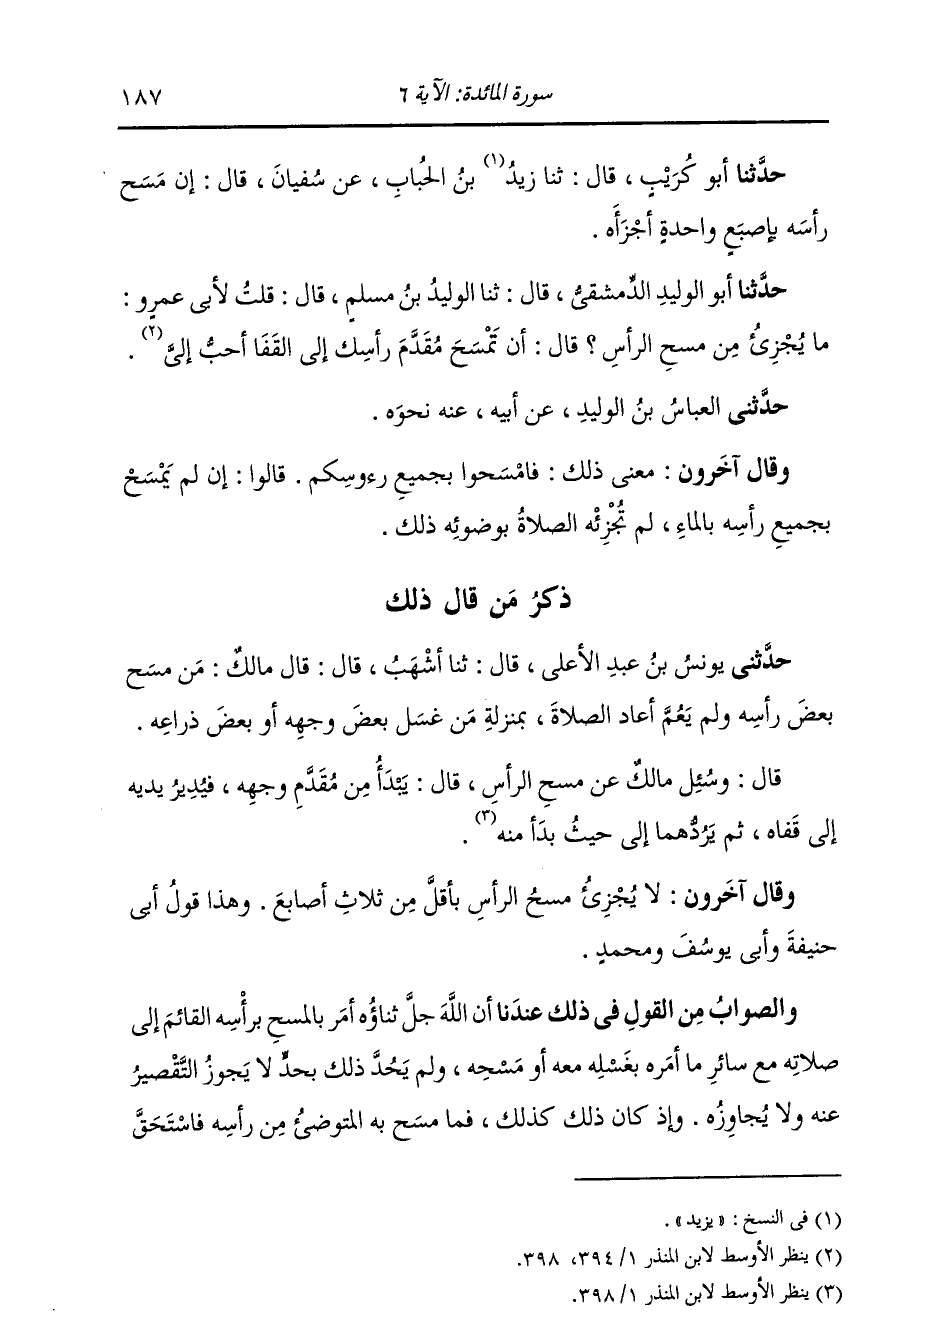 سورة المائدة: الآية ٦ ١٨٧
حدَّثنا أبو كُرَيْبٍ ، قال : ثنا زيدُ(١) بنُ الحُبابِ ، عن سُفيانَ ، قال : إن مَسَح
رأسَه بإصبَعٍ واحدةٍ أجْزَأَه .
حدَّثنا أبو الوليدِ الدِّمشقىُّ ، قال : ثنا الوليدُ بنُ مسلمٍ ، قال : قلتُ لأبى عمرٍو :
ما يُجْزِئُ مِن مسحِ الرأسِ ؟ قال : أن تَمْسَحَ مُقَدَّمَ رأسِك إلى القَفَا أحبُّ إلىَّ(٢) .
حدَّثنى العباسُ بنُ الوليدِ ، عن أبيه ، عنه نحوَه .
وقال آخَرون : معنى ذلك : فامْسَحوا بجميعِ رءوسِكم . قالوا : إن لم يَمْسَحْ
بجميعِ رأسِه بالماءِ ، لم تُجْزِئْه الصلاةُ بوضوئِه ذلك .
ذكرُ مَن قال ذلك
حدَّثنى يونسُ بنُ عبدِ الأعلى ، قال : ثنا أشْهَبُ ، قال : قال مالكٌ : مَن مسَح
بعضَ رأسِه ولم يَعُمَّ أعاد الصلاةَ ، بمنزلةِ مَن غسَل بعضَ وجهِه أو بعضَ ذراعِه .
قال : وسُئِل مالكٌ عن مسحِ الرأسِ ، قال : يَبْدَأُ مِن مُقَدَّمِ وجهِه ، فيُدِيرُ يديه
إلى قَفاه ، ثم يَرُدُّهما إلى حيثُ بدَأ منه(٣) .
وقال آخَرون : لا يُجْزِئُ مسحُ الرأسِ بأقلَّ مِن ثلاثِ أصابعَ . وهذا قولُ أبى
حنيفةَ وأبى يوسُفَ ومحمدٍ .
والصوابُ مِن القولِ فى ذلك عندَنا أن اللَّهَ جلَّ ثناؤُه أمَر بالمسحِ برأْسِه القائمَ إلى
صلاتِه مع سائرِ ما أمَره بغَسْلِه معه أو مَسْحِه ، ولم يَحُدَّ ذلك بحدٍّ لا يَجوزُ التَّقْصيرُ
عنه ولا يُجاوِزُه . وإذ كان ذلك كذلك ، فما مسَح به المتوضئُ مِن رأسِه فاسْتَحَقَّ
(١) فى النسخ : « يزيد » .
(٢) ينظر الأوسط لابن المنذر ١/ ٣٩٤، ٣٩٨.
(٣) ينظر الأوسط لابن المنذر ١/ ٣٩٨.